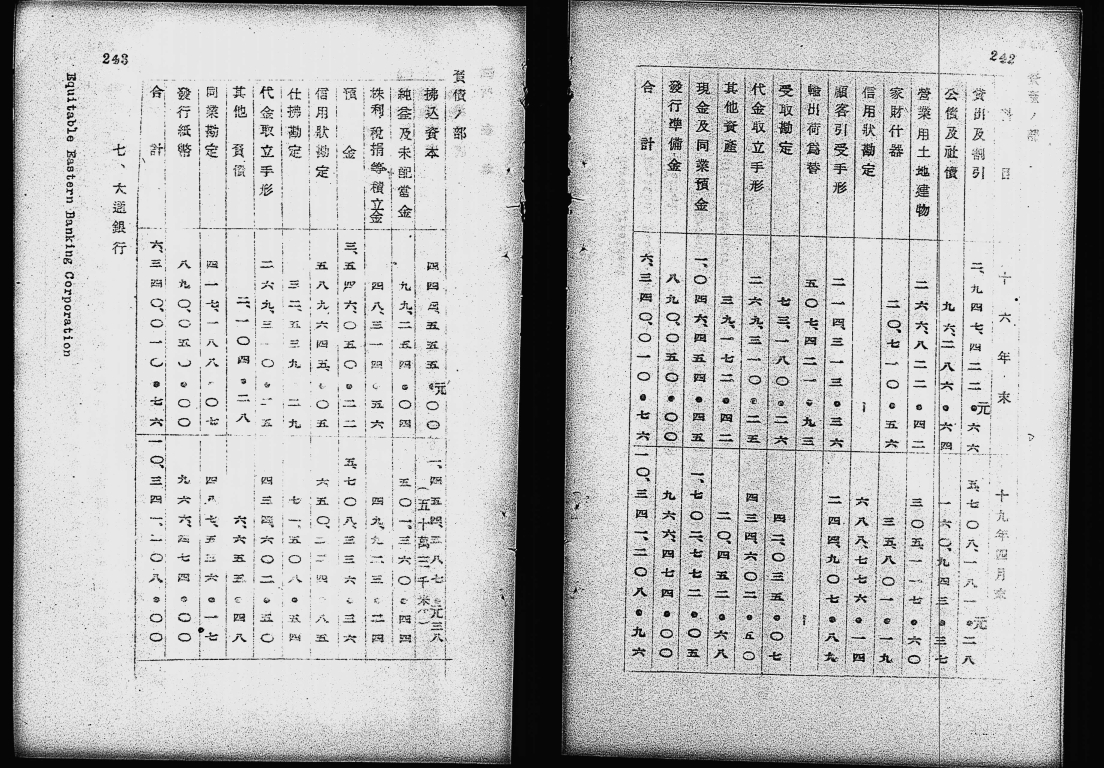 242
資產ノ部
科目 十六年末 十九年四月末
貸出及割引 二、九四七、四二二・六六元 五、七〇八、一八一・二八元
公債及社債 九六、二八六・六四 一六〇、九四三・三七
營業用土地建物 二六六、八二二・四二 三〇五、一一七・六〇
家財什器 二〇、七一〇・五六 三五、八〇一・一九
信用狀勘定 ー 六八八、七七六・一四
顧客引受手形 二一四、三一三・三六 二四四、九〇七・八九
輸出荷爲替 五〇七、四二一・九三 ー
受取勘定 七三、一八〇・二六 四二、〇三五・〇七
代金取立手形 二六九、三一〇・二五 四三四、六〇二・五〇
其他資產 三九、一七二・四二 二〇、四五二・六八
現金及同業預金 一、〇四六、四五四・四五 一、七〇二、七七二・〇五
發行準備金 八九〇、〇五〇・〇〇 九六六、四七四・〇〇
合計 六、三四〇、〇一〇・七六 一〇、三四一、二〇八・九六
243
負債ノ部
拂込資本
純益及未配當金 九九、二五四・〇四 五〇一、三六〇・四四
株利稅捐等積立金 四八、三一四・五六 四九、九二三・二四
預金 三、五四六、〇五〇・二二 五、七〇八、三三六・三六
信用狀勘定 五八九、六四五・〇五
仕拂勘定 三二、五三九・二九 七一、五〇八・五四
代金取立手形 二六九、三一〇・二五 四三四、六〇二・五〇
其他負債 二、一〇四・二八 六、六五五・四八
同業勘定 四一七、一八八・〇七
發行紙幣 八九〇、〇五〇・〇〇 九六六、四七四・〇〇
合計 六、三四〇、〇一〇・七六
七、大通銀行
Equitable Eastern Banking Corporation